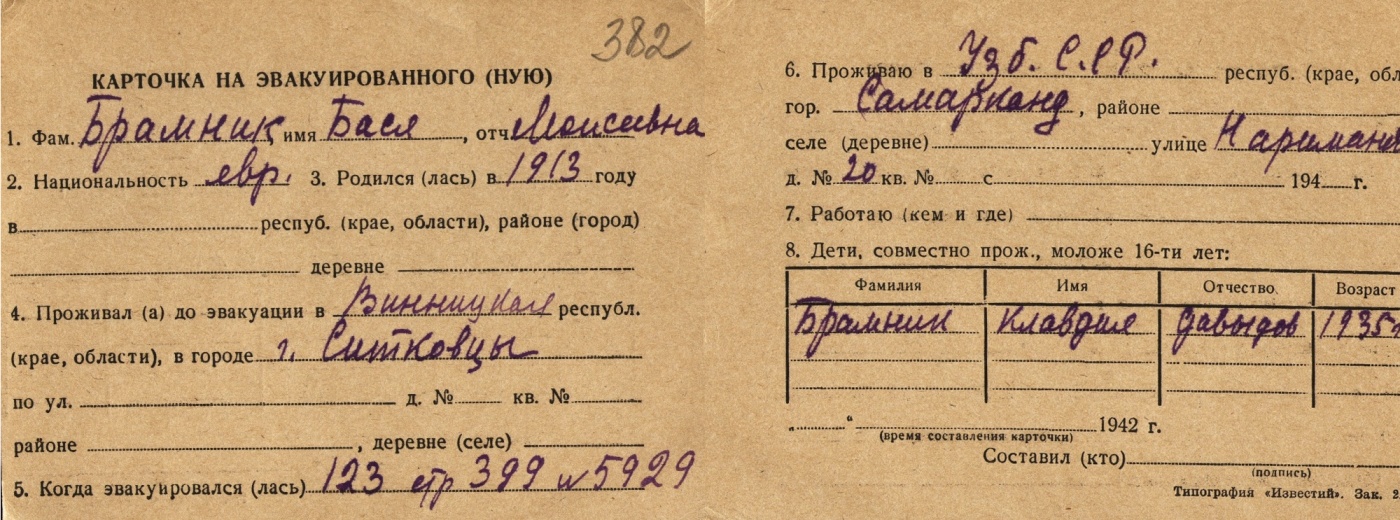 382
КАРТОЧКА НА ЭВАКУИРОВАННОГО (НУЮ)
1. Фам. Брамник имя Бася, отч. Моисеевна
2. Национальность евр. 3. Родился (лась) в 1913 году
в респуб. (крае, области), районе (город)
деревне
4. Проживал (а) до эвакуации в Винницкая республ.
(крае, области), в городе г. Ситковцы
по ул. д. № кв. №
районе , деревне (селе)
5. Когда эвакуировался (лась) 123 стр 399 и 5929
6. Проживаю в Узб. С.С.Р. респуб. (крае, обл
гор. Самарканд, районе
селе (деревне) улице Нариман
д. № 20 кв. № с 194 г.
7. Работаю (кем и где)
8. Дети, совместно прож., моложе 16-ти лет:
Фамилия Имя Отчество Возраст
Брамник Клавдия Давыдов 1935г
„ “ 1942 г.
(время составления карточки)
Составил (кто)
(подпись)
Типография «Известий». Зак. 2